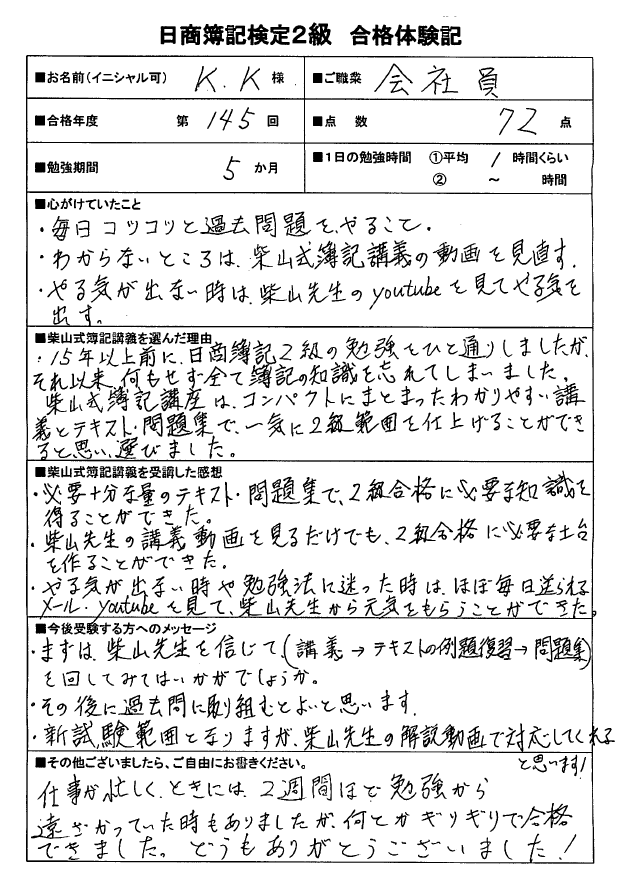 日商簿記検定2級 合格体験記
■お名前(イニシャル可) K.K 様 ■ご職業 会社員
■合格年度 第 145 回 ■点 数 72 点
■勉強期間 5 か月 ■1日の勉強時間 ①平均 1 時間くらい
② ～ 時間
■心がけていたこと
・毎日コツコツと過去問題をやること.
・わからないところは、柴山式簿記講義の動画を見直す.
・やる気が出ない時は、柴山先生のyoutubeを見てやる気を
出す。
■柴山式簿記講義を選んだ理由
・15年以上前に、日商簿記2級の勉強をひと通りしましたが、
それ以来、何もせず全て簿記の知識を忘れてしまいました。
柴山式簿記講座は、コンパクトにまとまったわかりやすい講
義とテキスト・問題集で、一気に2級範囲を仕上げることができ
ると思い、選びました。
■柴山式簿記講義を受講した感想
・必要十分な量のテキスト・問題集で、2級合格に必要な知識を
得ることができた。
・柴山先生の講義動画を見るだけでも、2級合格に必要な土台
を作ることができた。
・やる気が出ない時や勉強法に迷った時は、ほぼ毎日送られる
メール・youtubeを見て、柴山先生から元気をもらうことができた。
■今後受験する方へのメッセージ
・まずは、柴山先生を信じて(講義→テキストの例題復習→問題集)
を回してみてはいかがでしょうか。
・その後に過去問に取り組むとよいと思います.
・新試験範囲となりますが、柴山先生の解説動画で対応してくれる
と思います!
■その他ございましたら、ご自由にお書きください。
仕事が忙しく、ときには、2週間ほど勉強から
遠ざかっていた時もありましたが、何とかギリギリで合格
できました。どうもありがとうございました!